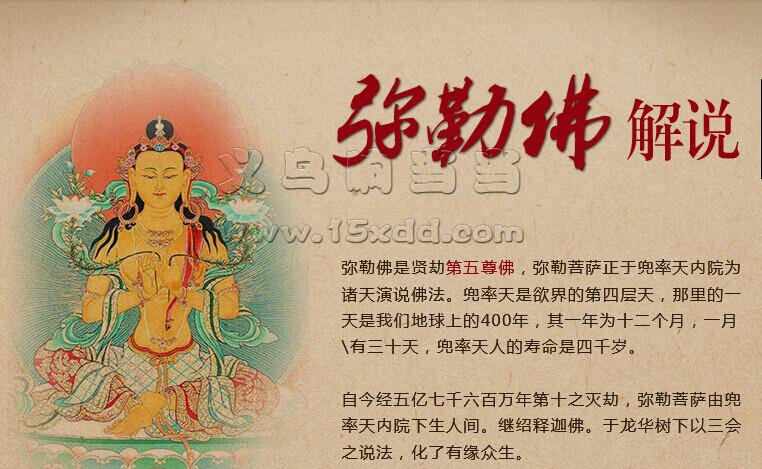 弥勒佛 解说
义乌响当当
www.15xdd.com
弥勒佛是贤劫第五尊佛，弥勒菩萨正于兜率天内院为
诸天演说佛法。兜率天是欲界的第四层天，那里的一
天是我们地球上的400年，其一年为十二个月，一月
\有三十天，兜率天人的寿命是四千岁。
自今经五亿七千六百万年第十之灭劫，弥勒菩萨由兜
率天内院下生人间。继绍释迦佛。于龙华树下以三会
之说法，化了有缘众生。